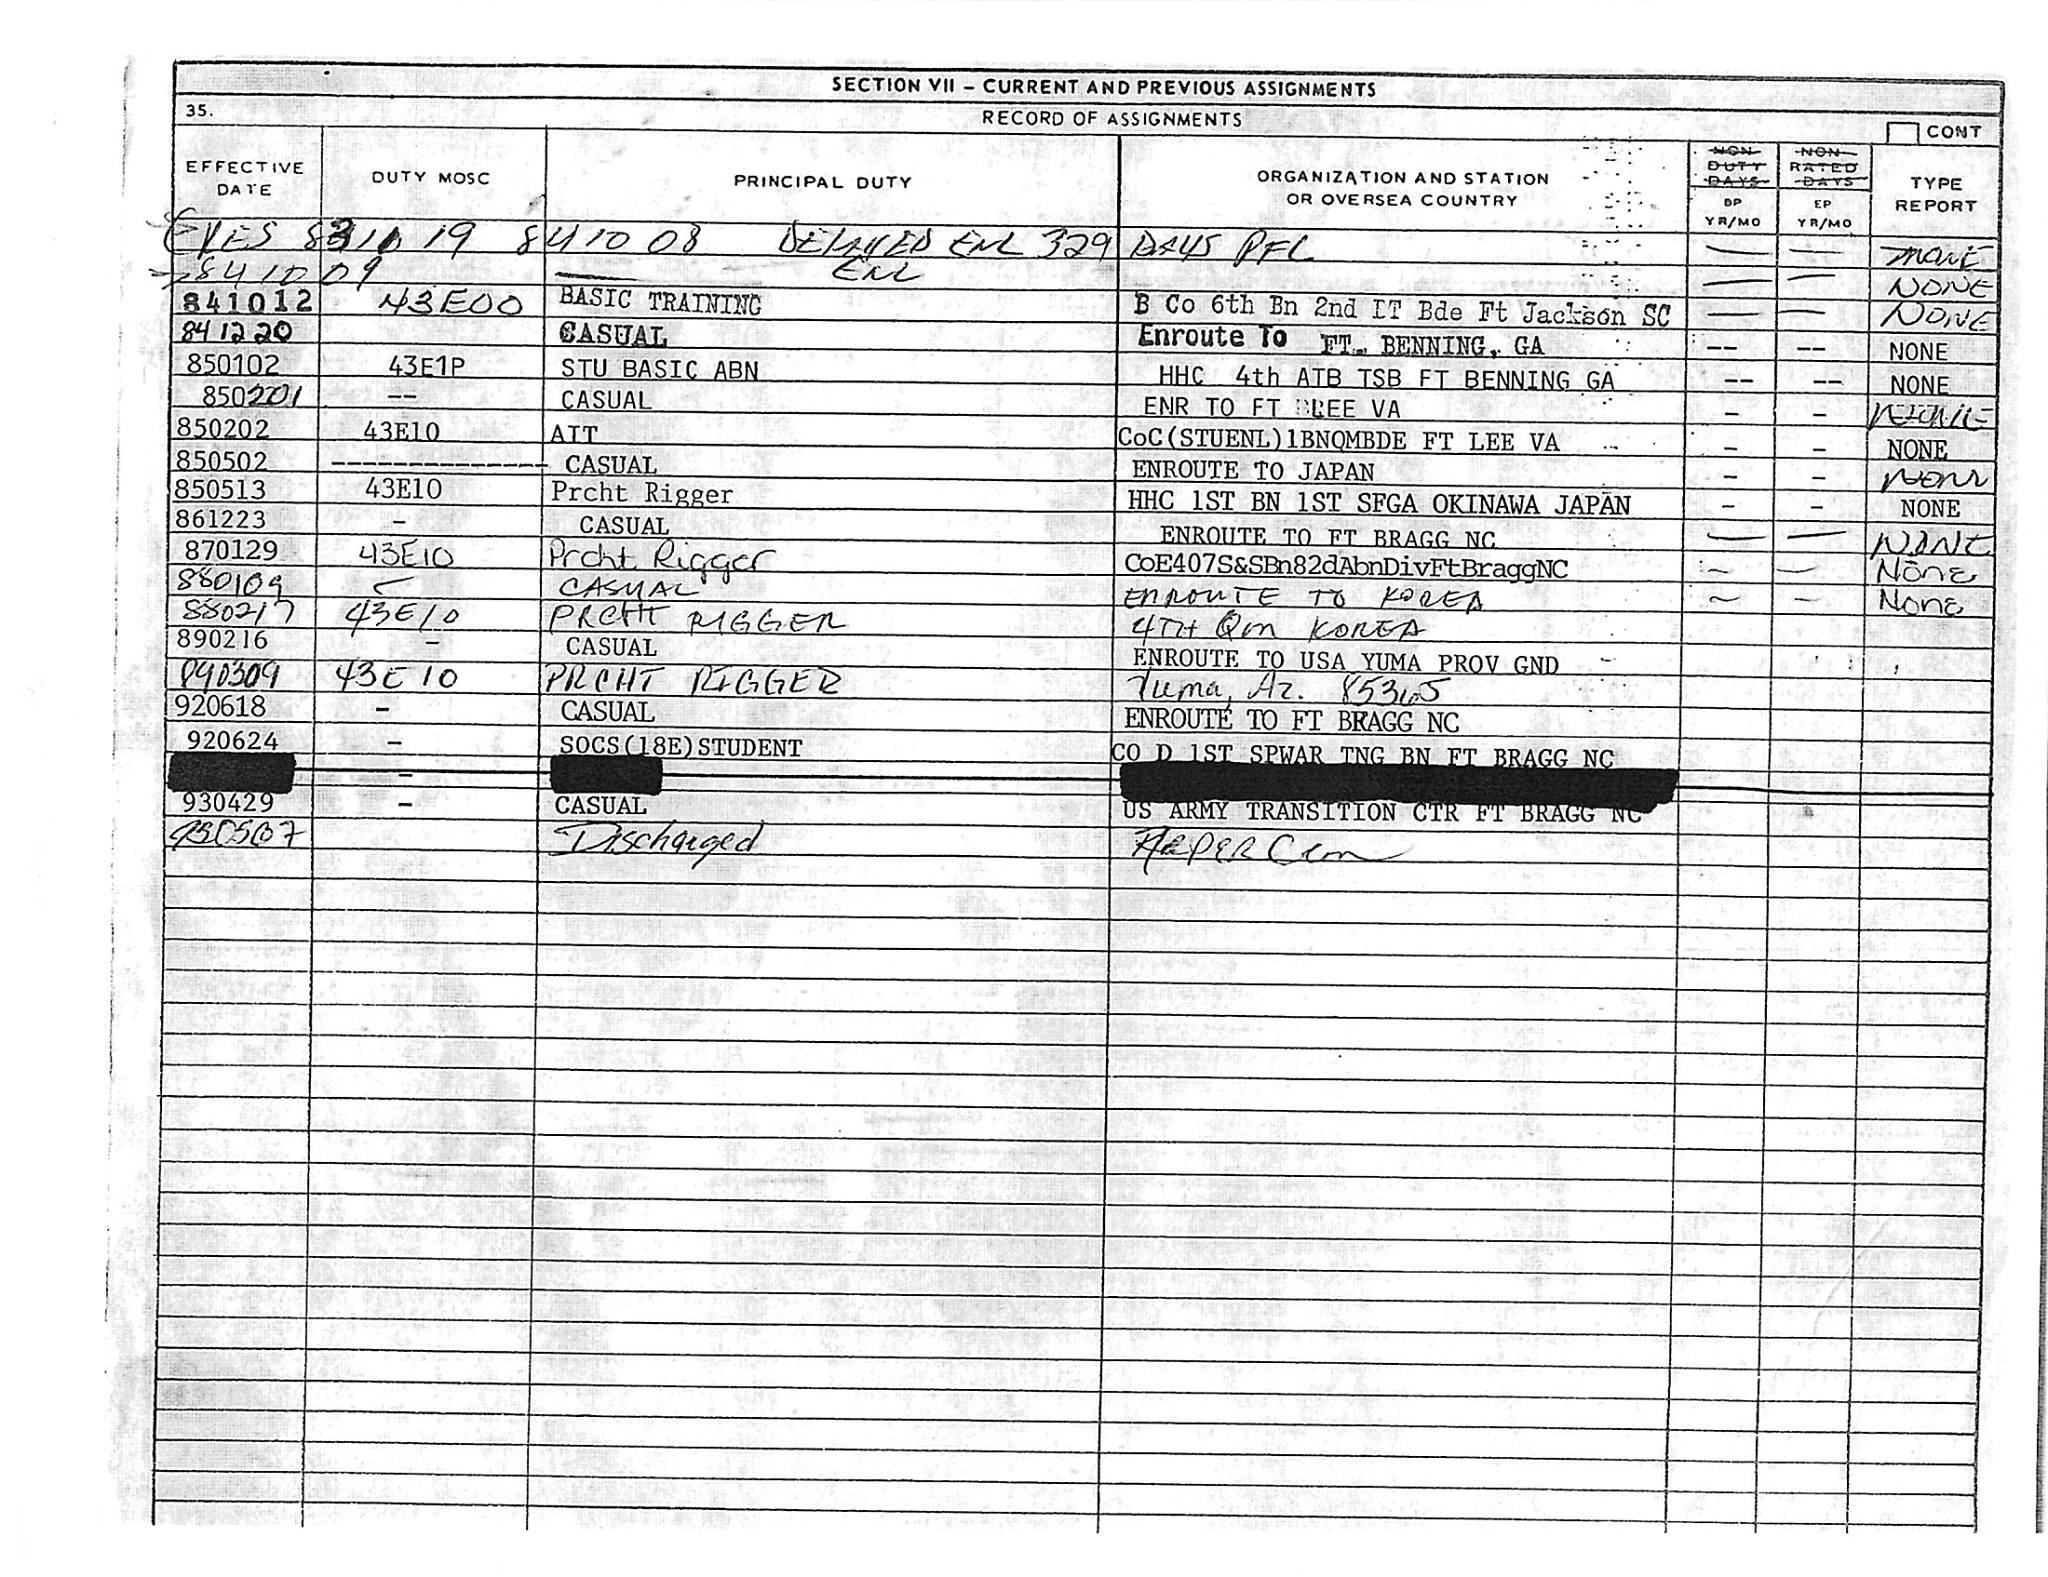 SECTION VII – CURRENT AND PREVIOUS ASSIGNMENTS
35. RECORD OF ASSIGNMENTS
CONT
EFFECTIVE DATE DUTY MOSC PRINCIPAL DUTY ORGANIZATION AND STATION OR OVERSEA COUNTRY NON DUTY DAYS BP YR/MO NON RATED DAYS EP YR/MO TYPE REPORT
19 841008 DELAYED ENL 329 DAYS PFC — — NONE
841009 — ENL — — NONE
841012 43E00 BASIC TRAINING B Co 6th Bn 2nd IT Bde Ft Jackson SC — — NONE
841220 CASUAL Enroute To FT. BENNING, GA -- -- NONE
850102 43E1P STU BASIC ABN HHC 4th ATB TSB FT BENNING GA -- -- NONE
850201 -- CASUAL ENR TO FT LEE VA - - NONE
850202 43E10 AIT CoC(STUENL)1BNQMBDE FT LEE VA - - NONE
850502 -------------- CASUAL ENROUTE TO JAPAN - - NONE
850513 43E10 Prcht Rigger HHC 1ST BN 1ST SFGA OKINAWA JAPAN - - NONE
861223 - CASUAL ENROUTE TO FT BRAGG NC — — NONE
870129 43E10 Prcht Rigger CoE407S&SBn82dAbnDivFtBraggNC - - None
880109 - CASUAL ENROUTE TO KOREA - - None
880217 43E10 PRCHT RIGGER 4TH Qm KOREA
890216 - CASUAL ENROUTE TO USA YUMA PROV GND
890309 43E10 PRCHT RIGGER Yuma, Az. 85365
920618 - CASUAL ENROUTE TO FT BRAGG NC
920624 - SOCS(18E)STUDENT CO D 1ST SPWAR TNG BN FT BRAGG NC
-
930429 - CASUAL US ARMY TRANSITION CTR FT BRAGG NC
930507 Discharged